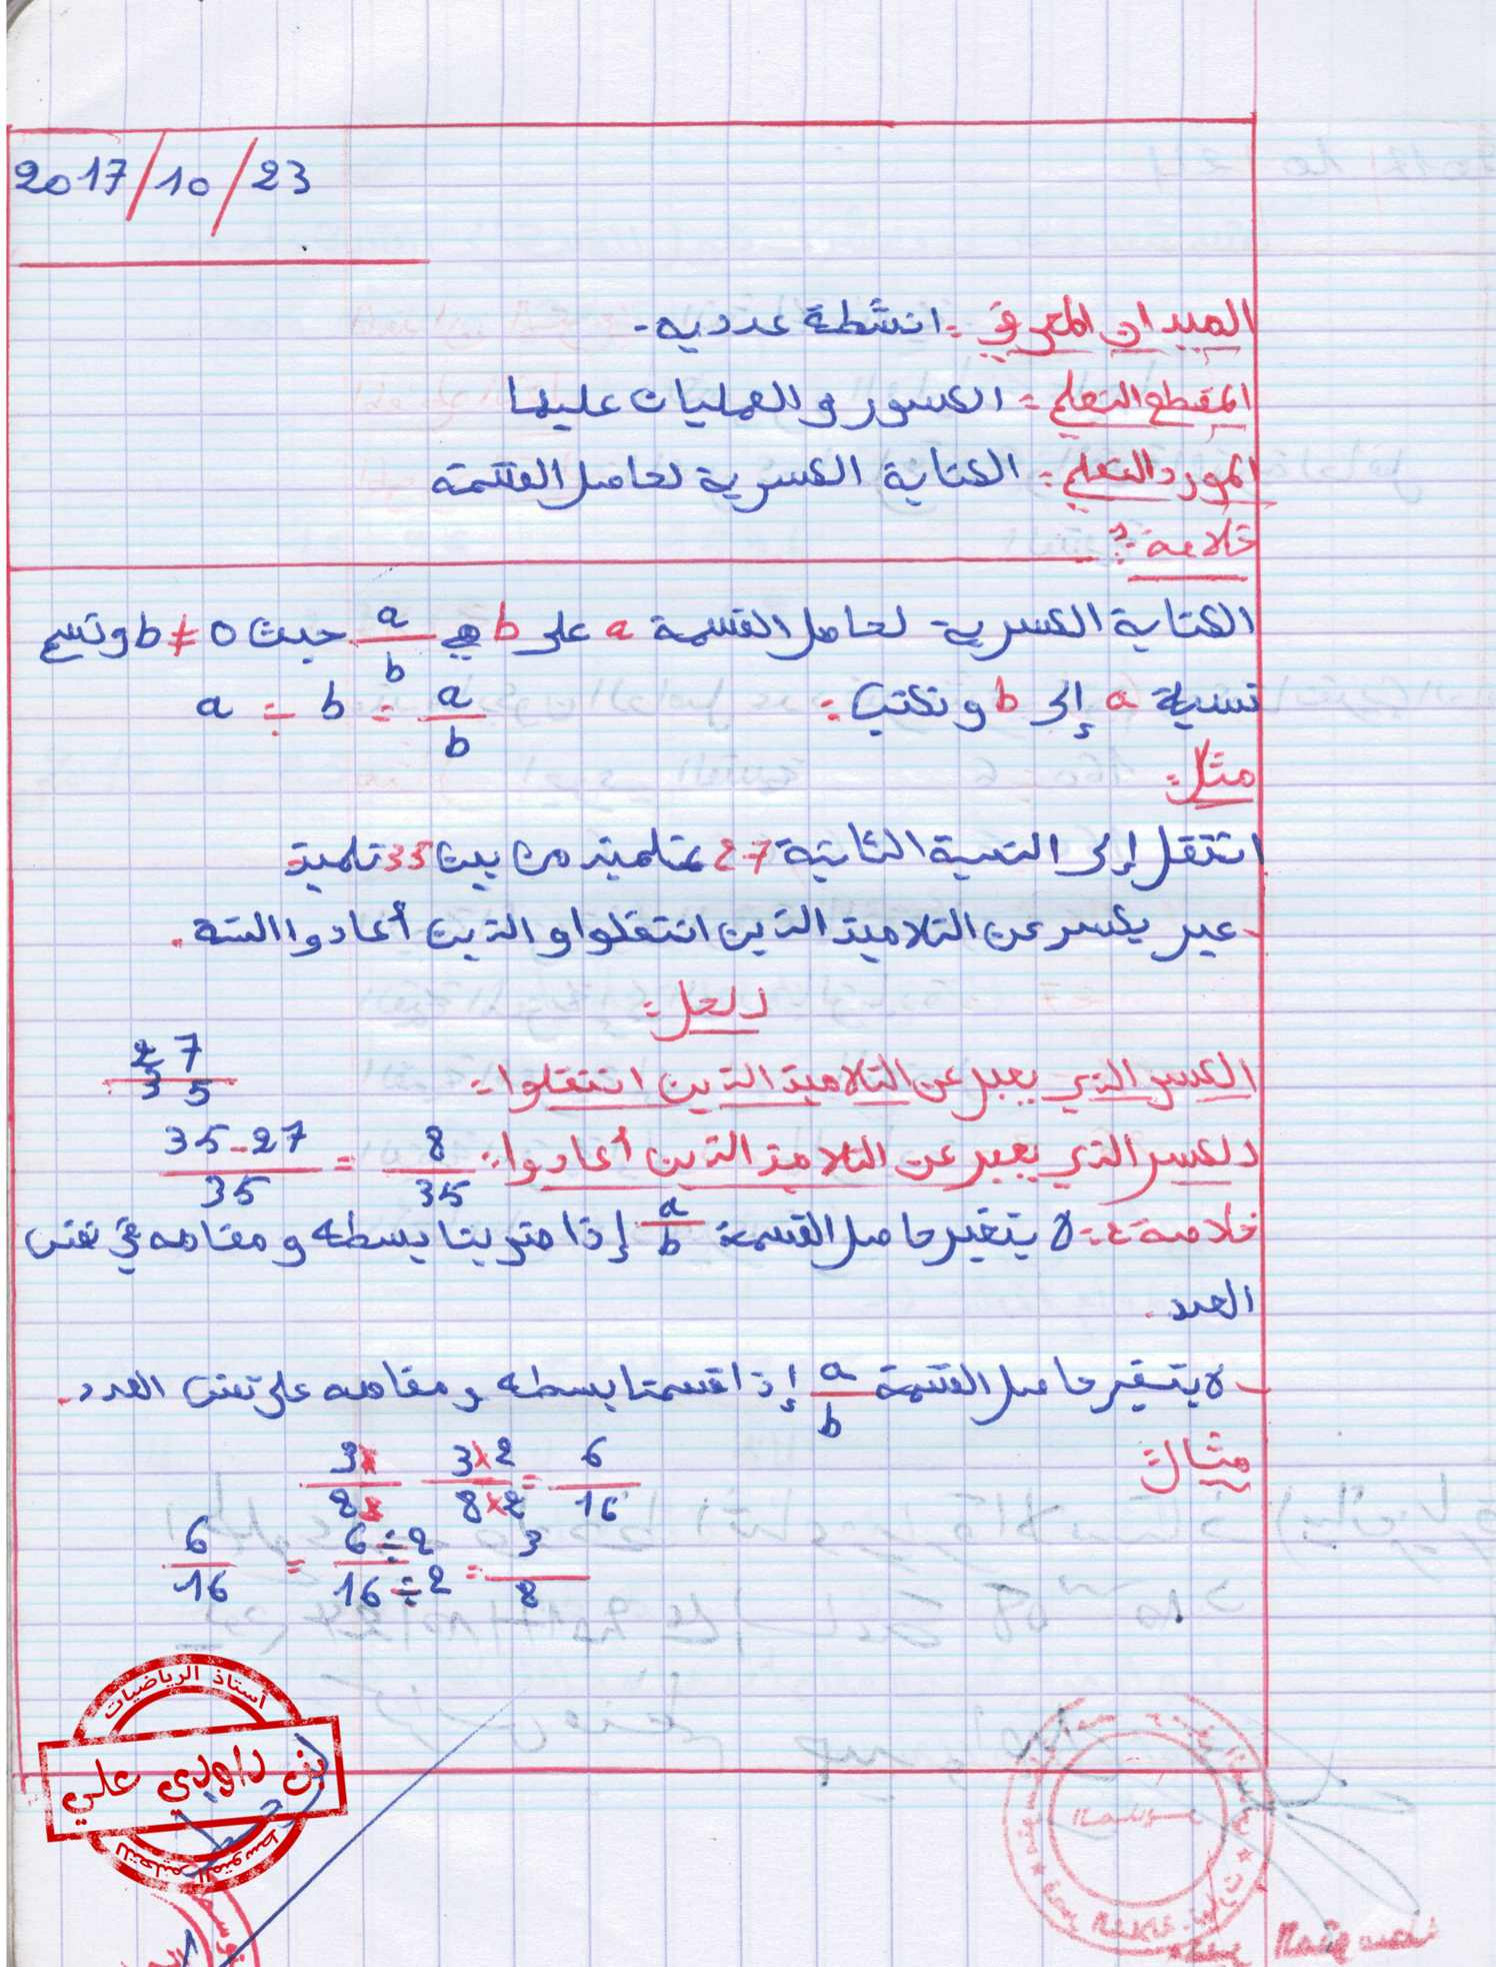 2017/10/23
الميدان المعرفي : انشطة عدديه.
المقطع التعلمي : الكسور والعمليات عليها
المورد التعلمي : الكتابة الكسرية لحاصل القسمة
خلاصة 1 :
الكتابة الكسرية لحاصل القسمة a على b هي a/b حيث b ≠ 0 وتسمى
نسبة a إلى b ونكتب : a ÷ b = a/b
مثل :
انتقل إلى السنة الثانية 27 تلميذ من بين 35 تلميذ
- عبر بكسر عن التلاميذ الذين انتقلوا والذين أعادوا السنة.
الحل :
الكسر الذي يعبر عن التلاميذ الذين انتقلوا : 27/35
الكسر الذي يعبر عن التلاميذ الذين أعادوا : (35-27)/35 = 8/35
خلاصة 2 : لا يتغير حاصل القسمة a/b إذا ضربنا بسطه ومقامه في نفس
العدد.
- لا يتغير حاصل القسمة a/b إذا قسمنا بسطه ومقامه على نفس العدد.
مثال
3×/8× (3×2)/(8×2) = 6/16
6/16 = (6÷2)/(16÷2) = 3/8
أستاذ الرياضيات
بن داودي علي
للتعليم المتوسط